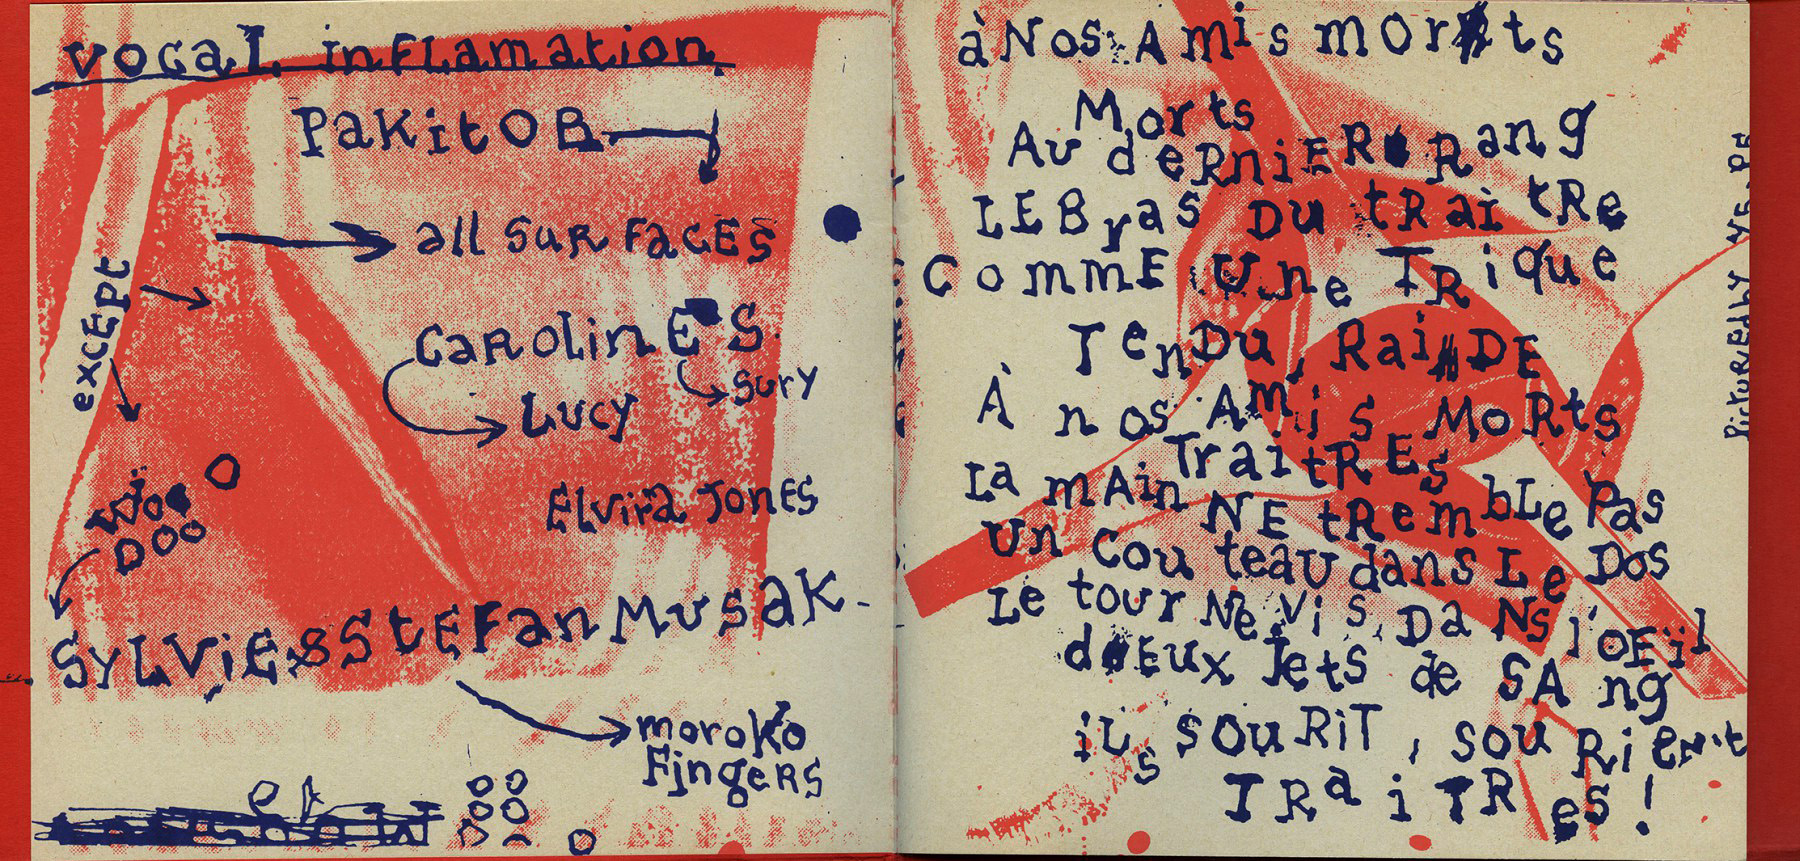 vocal inflamation
PakitO B
all surfaces
except
CarolinE's.
sury
Lucy
Elvira Jones
Woo
Doo
SylviE & StEFan Musak.
moroko
Fingers
à Nos Amis morts
Morts
Au dERNiER Rang
LE Bras Du tRaitRe
CommE Une TRique
TenDu, RaiDE
À nos Amis MoRts
TraitREs
La mAin NE tRembLe Pas
Un couteau dans Le Dos
Le tour Ne Vis Da Ns l'oEil
dEux Jets de SAng
iLs souRiT, souRieN't
TRaiTRes!